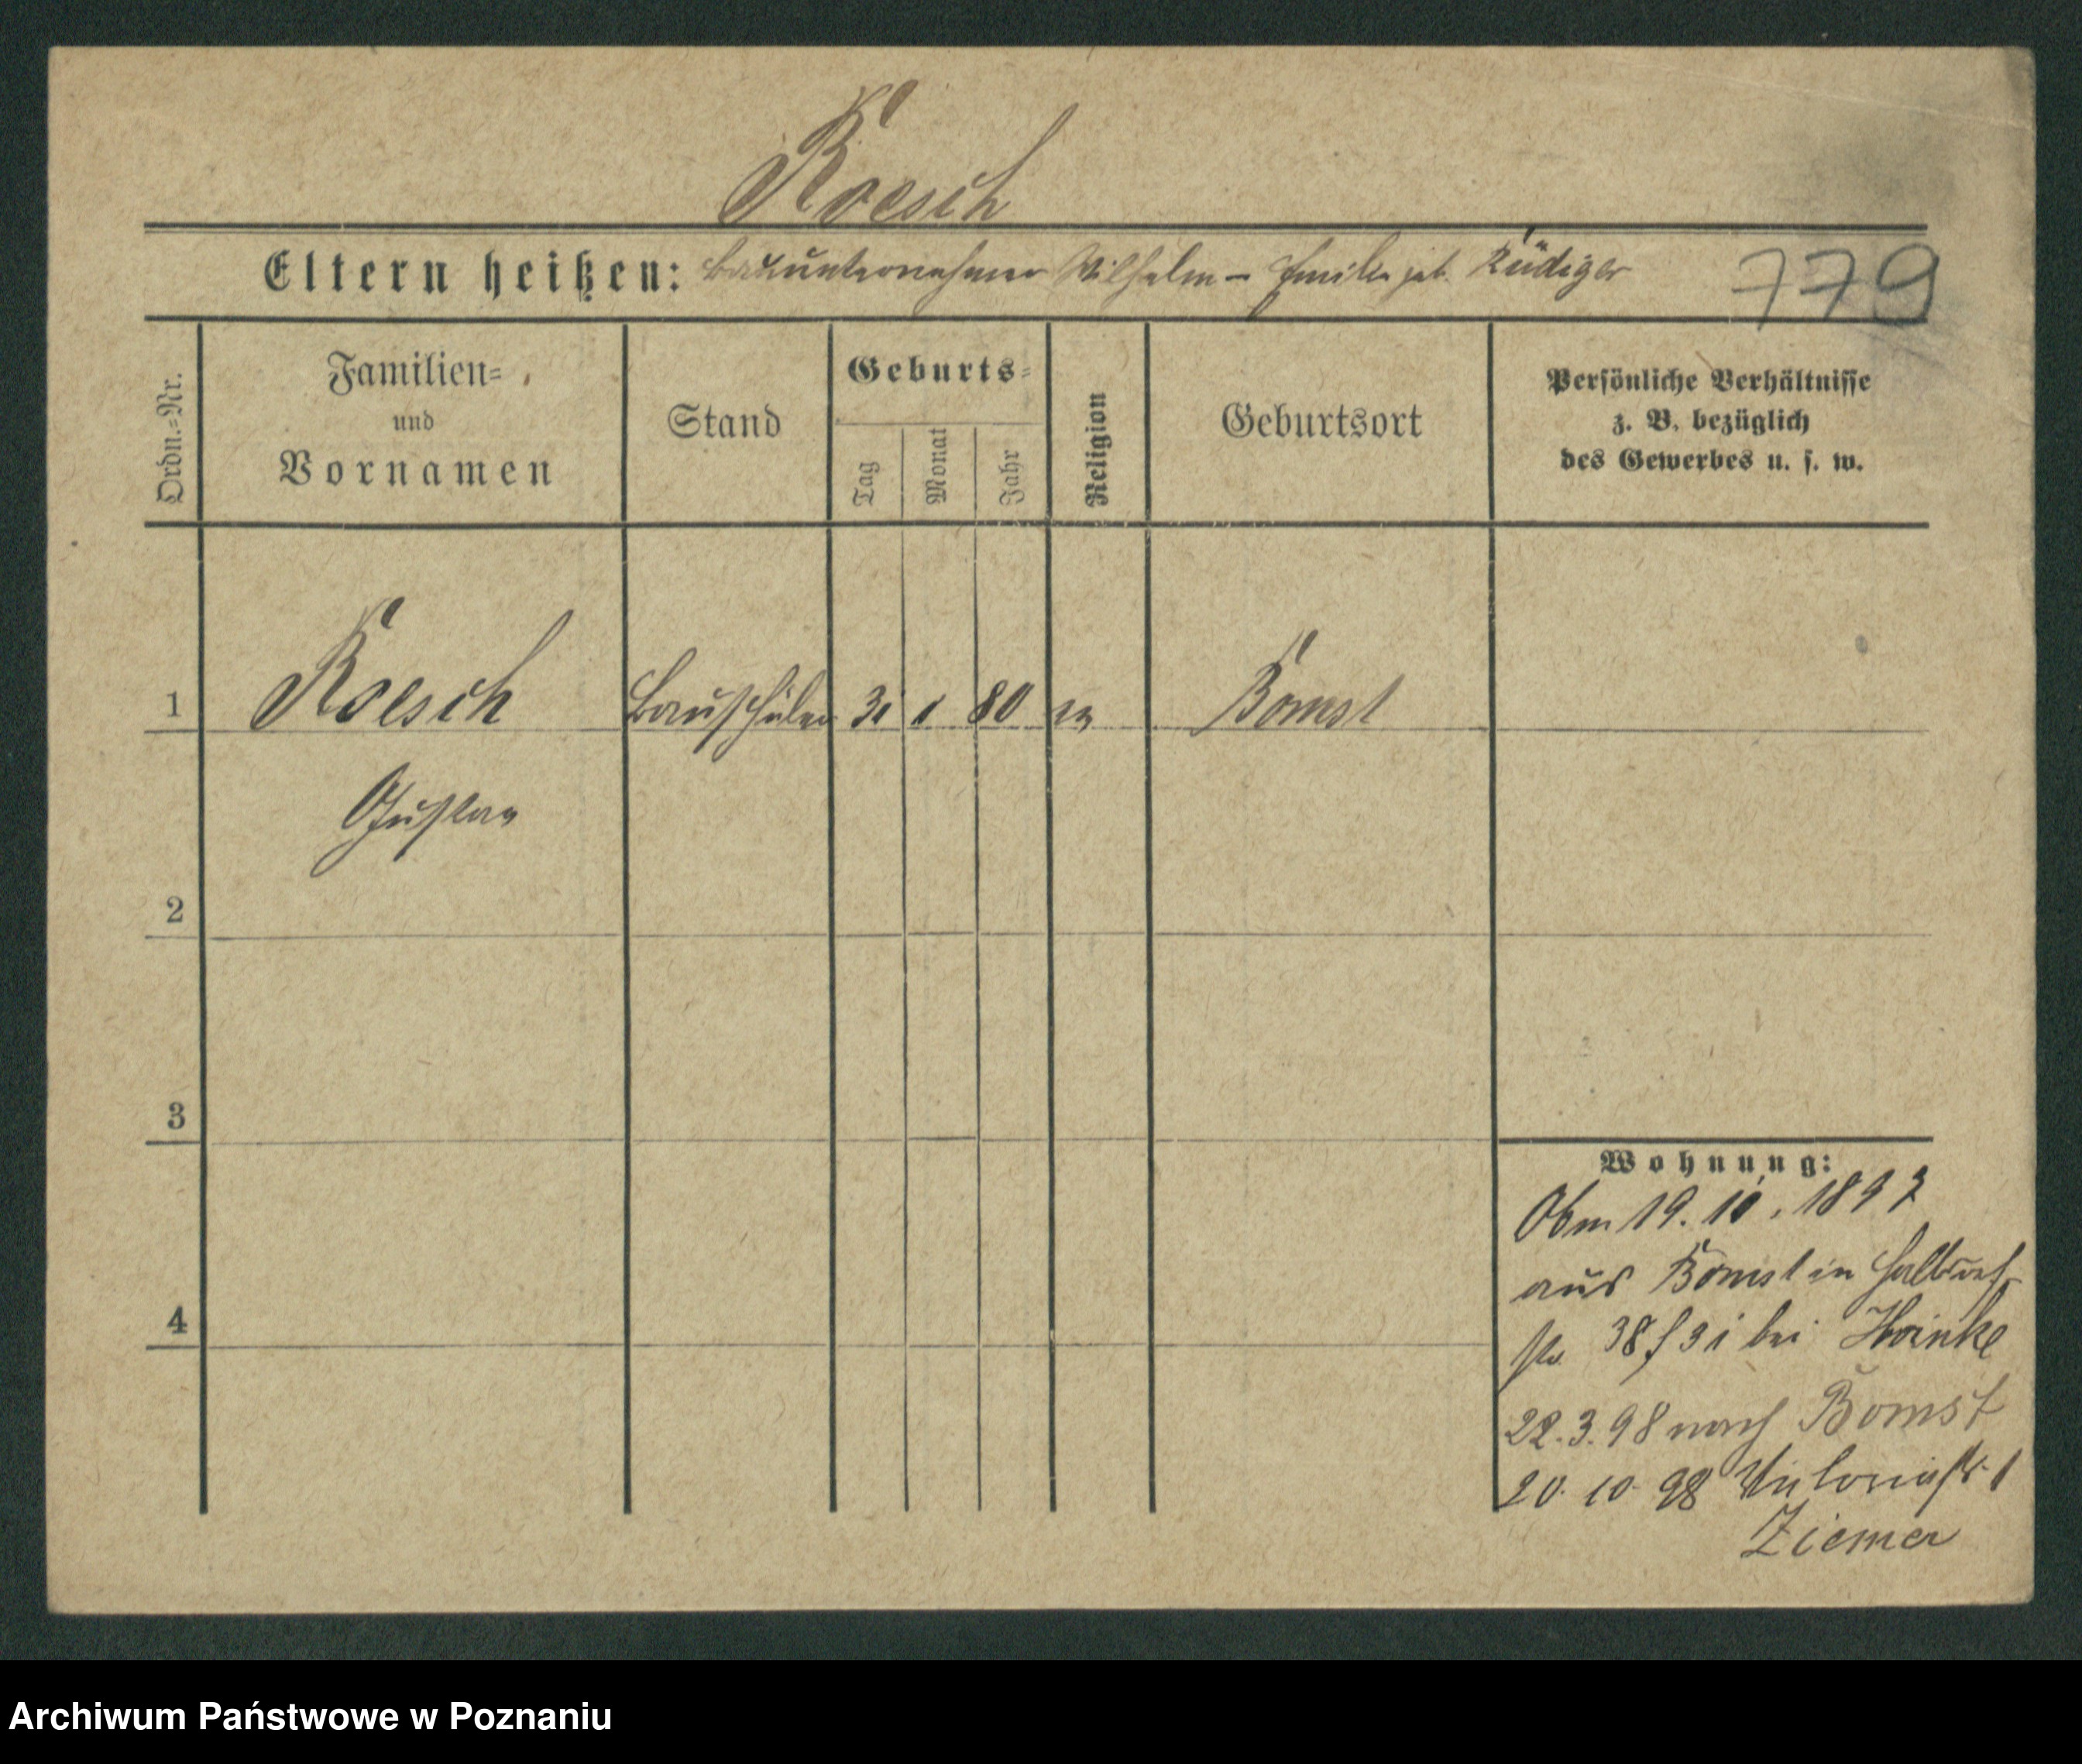 Roesch
Eltern heißen: Bauunternehmer Wilhelm – Emilie geb. Rüdiger
779
Ordn.-Nr.
Familien-
und
Vornamen
Stand
Geburts-
Tag
Monat
Jahr
Religion
Geburtsort
Persönliche Verhältnisse
z. B. bezüglich
des Gewerbes u. s. w.
1 Roesch Bauschüler 31 1 80 ev Bomst
Gustav
2
3
4
Wohnung:
19. 10. 1897
aus Bomst in Halbdorf
str 38 bei Hoinke
22.3.98 nach Bomst
20. 10. 98 Viktoriastr. 1
Ziemer
Archiwum Państwowe w Poznaniu